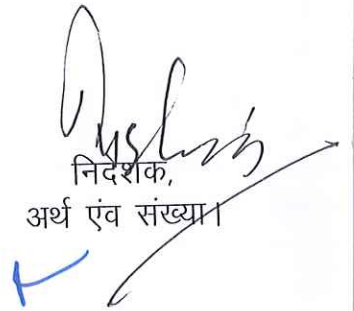 निदेशक,
अर्थ एंव संख्या।